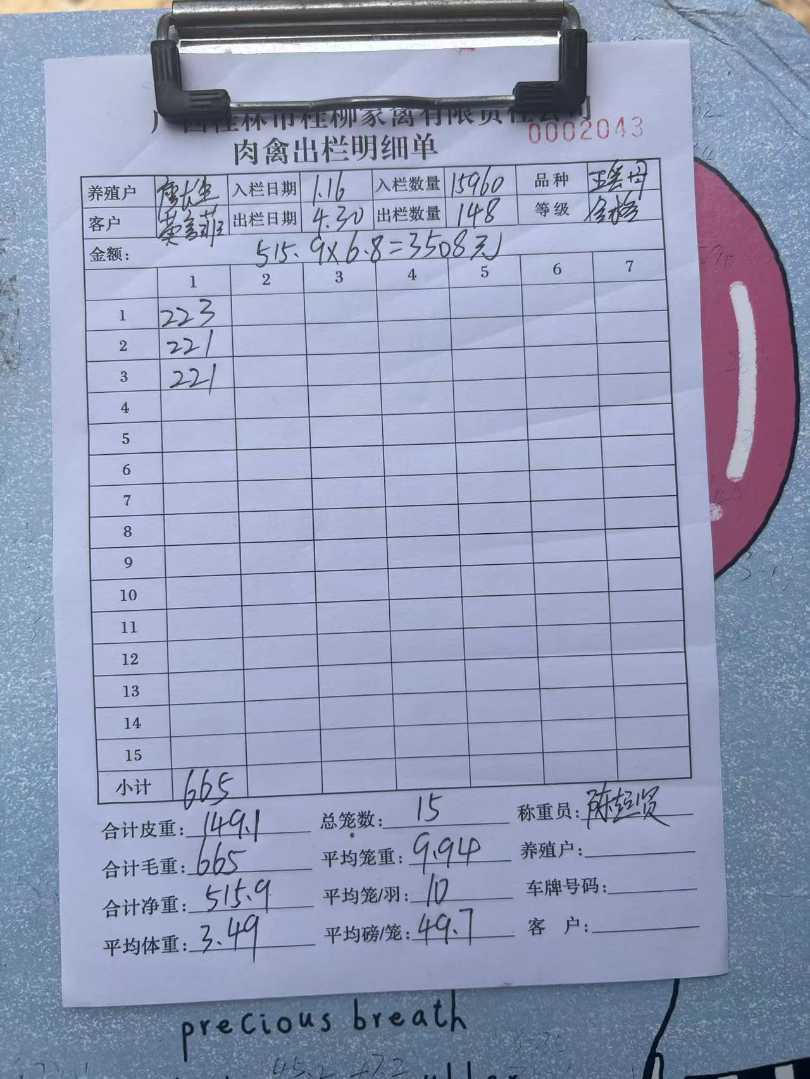 广西桂林市桂柳家禽有限责任公司
0002043
肉禽出栏明细单
养殖户 入栏日期 1.16 入栏数量 15960 品种
客户 出栏日期 4.30 出栏数量 148 等级 合格
金额: 515.9×6.8=3508元
1 2 3 4 5 6 7
1 223
2 221
3 221
4
5
6
7
8
9
10
11
12
13
14
15
小计 665
合计皮重: 149.1 总笼数: 15 称重员:
合计毛重: 665 平均笼重: 9.94 养殖户:
合计净重: 515.9 平均笼/羽: 10 车牌号码:
平均体重: 3.49 平均磅/笼: 49.7 客 户:
precious breath